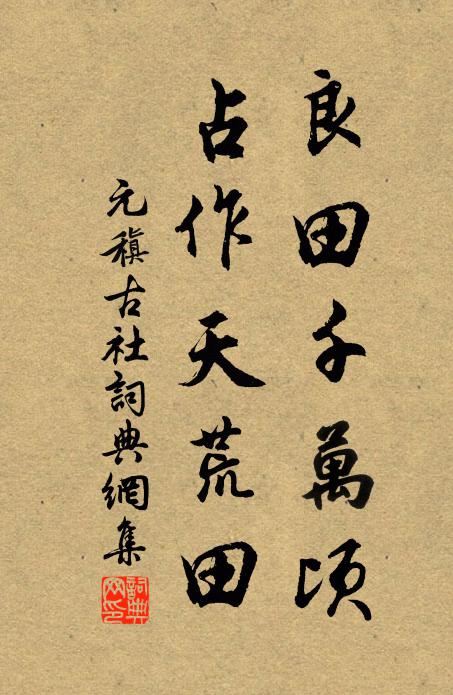 良田千萬頃
占作天荒田
元稹古社詞典網集
詞典网印